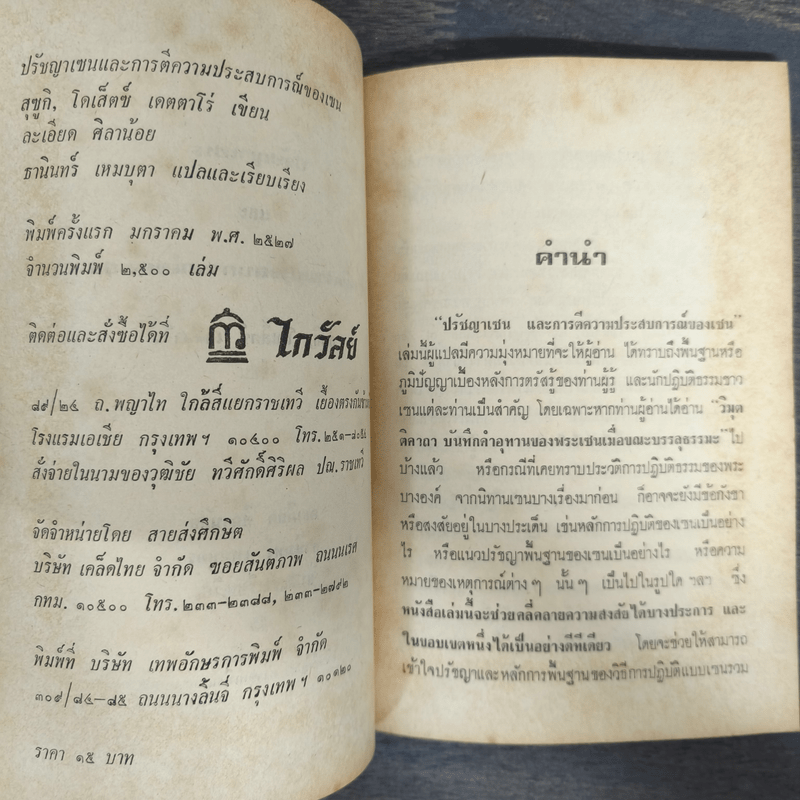 ปรัชญาเซนและการตีความประสบการณ์ของเซน
สุซูกิ, โดเส็ตซ์ เดตตาโร่ เขียน
ละเอียด ศิลาน้อย
ธานินทร์ เหมบุตา แปลและเรียบเรียง
พิมพ์ครั้งแรก มกราคม พ.ศ. ๒๕๒๗
จำนวนพิมพ์ ๒,๕๐๐ เล่ม
ติดต่อและสั่งซื้อได้ที่ ไกวัลย์
๘๙/๒๔ ถ.พญาไท ใกล้สี่แยกราชเทวี เยื้องตรงกันข้าม
โรงแรมเอเชีย กรุงเทพฯ ๑๐๔๐๐ โทร.
สั่งจ่ายในนามของวุฒิชัย ทวีศักดิ์ศิริผล ปณ.ราชเทวี
จัดจำหน่ายโดย สายส่งศึกษิต
บริษัท เคล็ดไทย จำกัด ซอยสันติภาพ ถนนนเรศ
กทม. ๑๐๕๐๐ โทร. ๒๓๓-๒๓๘๘, ๒๓๓-๒๗๙๒
พิมพ์ที่ บริษัท เทพอักษรการพิมพ์ จำกัด
๓๐๙/๘๔-๘๕ ถนนนางลิ้นจี่ กรุงเทพฯ ๑๐๑๒๐
ราคา ๑๕ บาท
คำนำ
"ปรัชญาเซน และการตีความประสบการณ์ของเซน"
เล่มนี้ผู้แปลมีความมุ่งหมายที่จะให้ผู้อ่าน ได้ทราบถึงพื้นฐานหรือ
ภูมิปัญญาเบื้องหลังการตรัสรู้ของท่านผู้รู้ และนักปฏิบัติธรรมชาว
เซนแต่ละท่านเป็นสำคัญ โดยเฉพาะหากท่านผู้อ่านได้อ่าน "วิมุต
ติคาถา บันทึกคำอุทานของพระเซนเมื่อขณะบรรลุธรรมะ" ไป
บ้างแล้ว หรือกรณีที่เคยทราบประวัติการปฏิบัติธรรมของพระ
บางองค์ จากนิทานเซนบางเรื่องมาก่อน ก็อาจจะยังมีข้อกังขา
หรือสงสัยอยู่ในบางประเด็น เช่นหลักการปฏิบัติของเซนเป็นอย่าง
ไร หรือแนวปรัชญาพื้นฐานของเซนเป็นอย่างไร หรือความ
หมายของเหตุการณ์ต่าง ๆ นั้น ๆ เป็นไปในรูปใด ฯลฯ ซึ่ง
หนังสือเล่มนี้จะช่วยคลี่คลายความสงสัยได้บางประการ และ
ในขอบเขตหนึ่งได้เป็นอย่างดีทีเดียว โดยจะช่วยให้สามารถ
เข้าใจปรัชญาและหลักการพื้นฐานของวิธีการปฏิบัติแบบเซนรวม